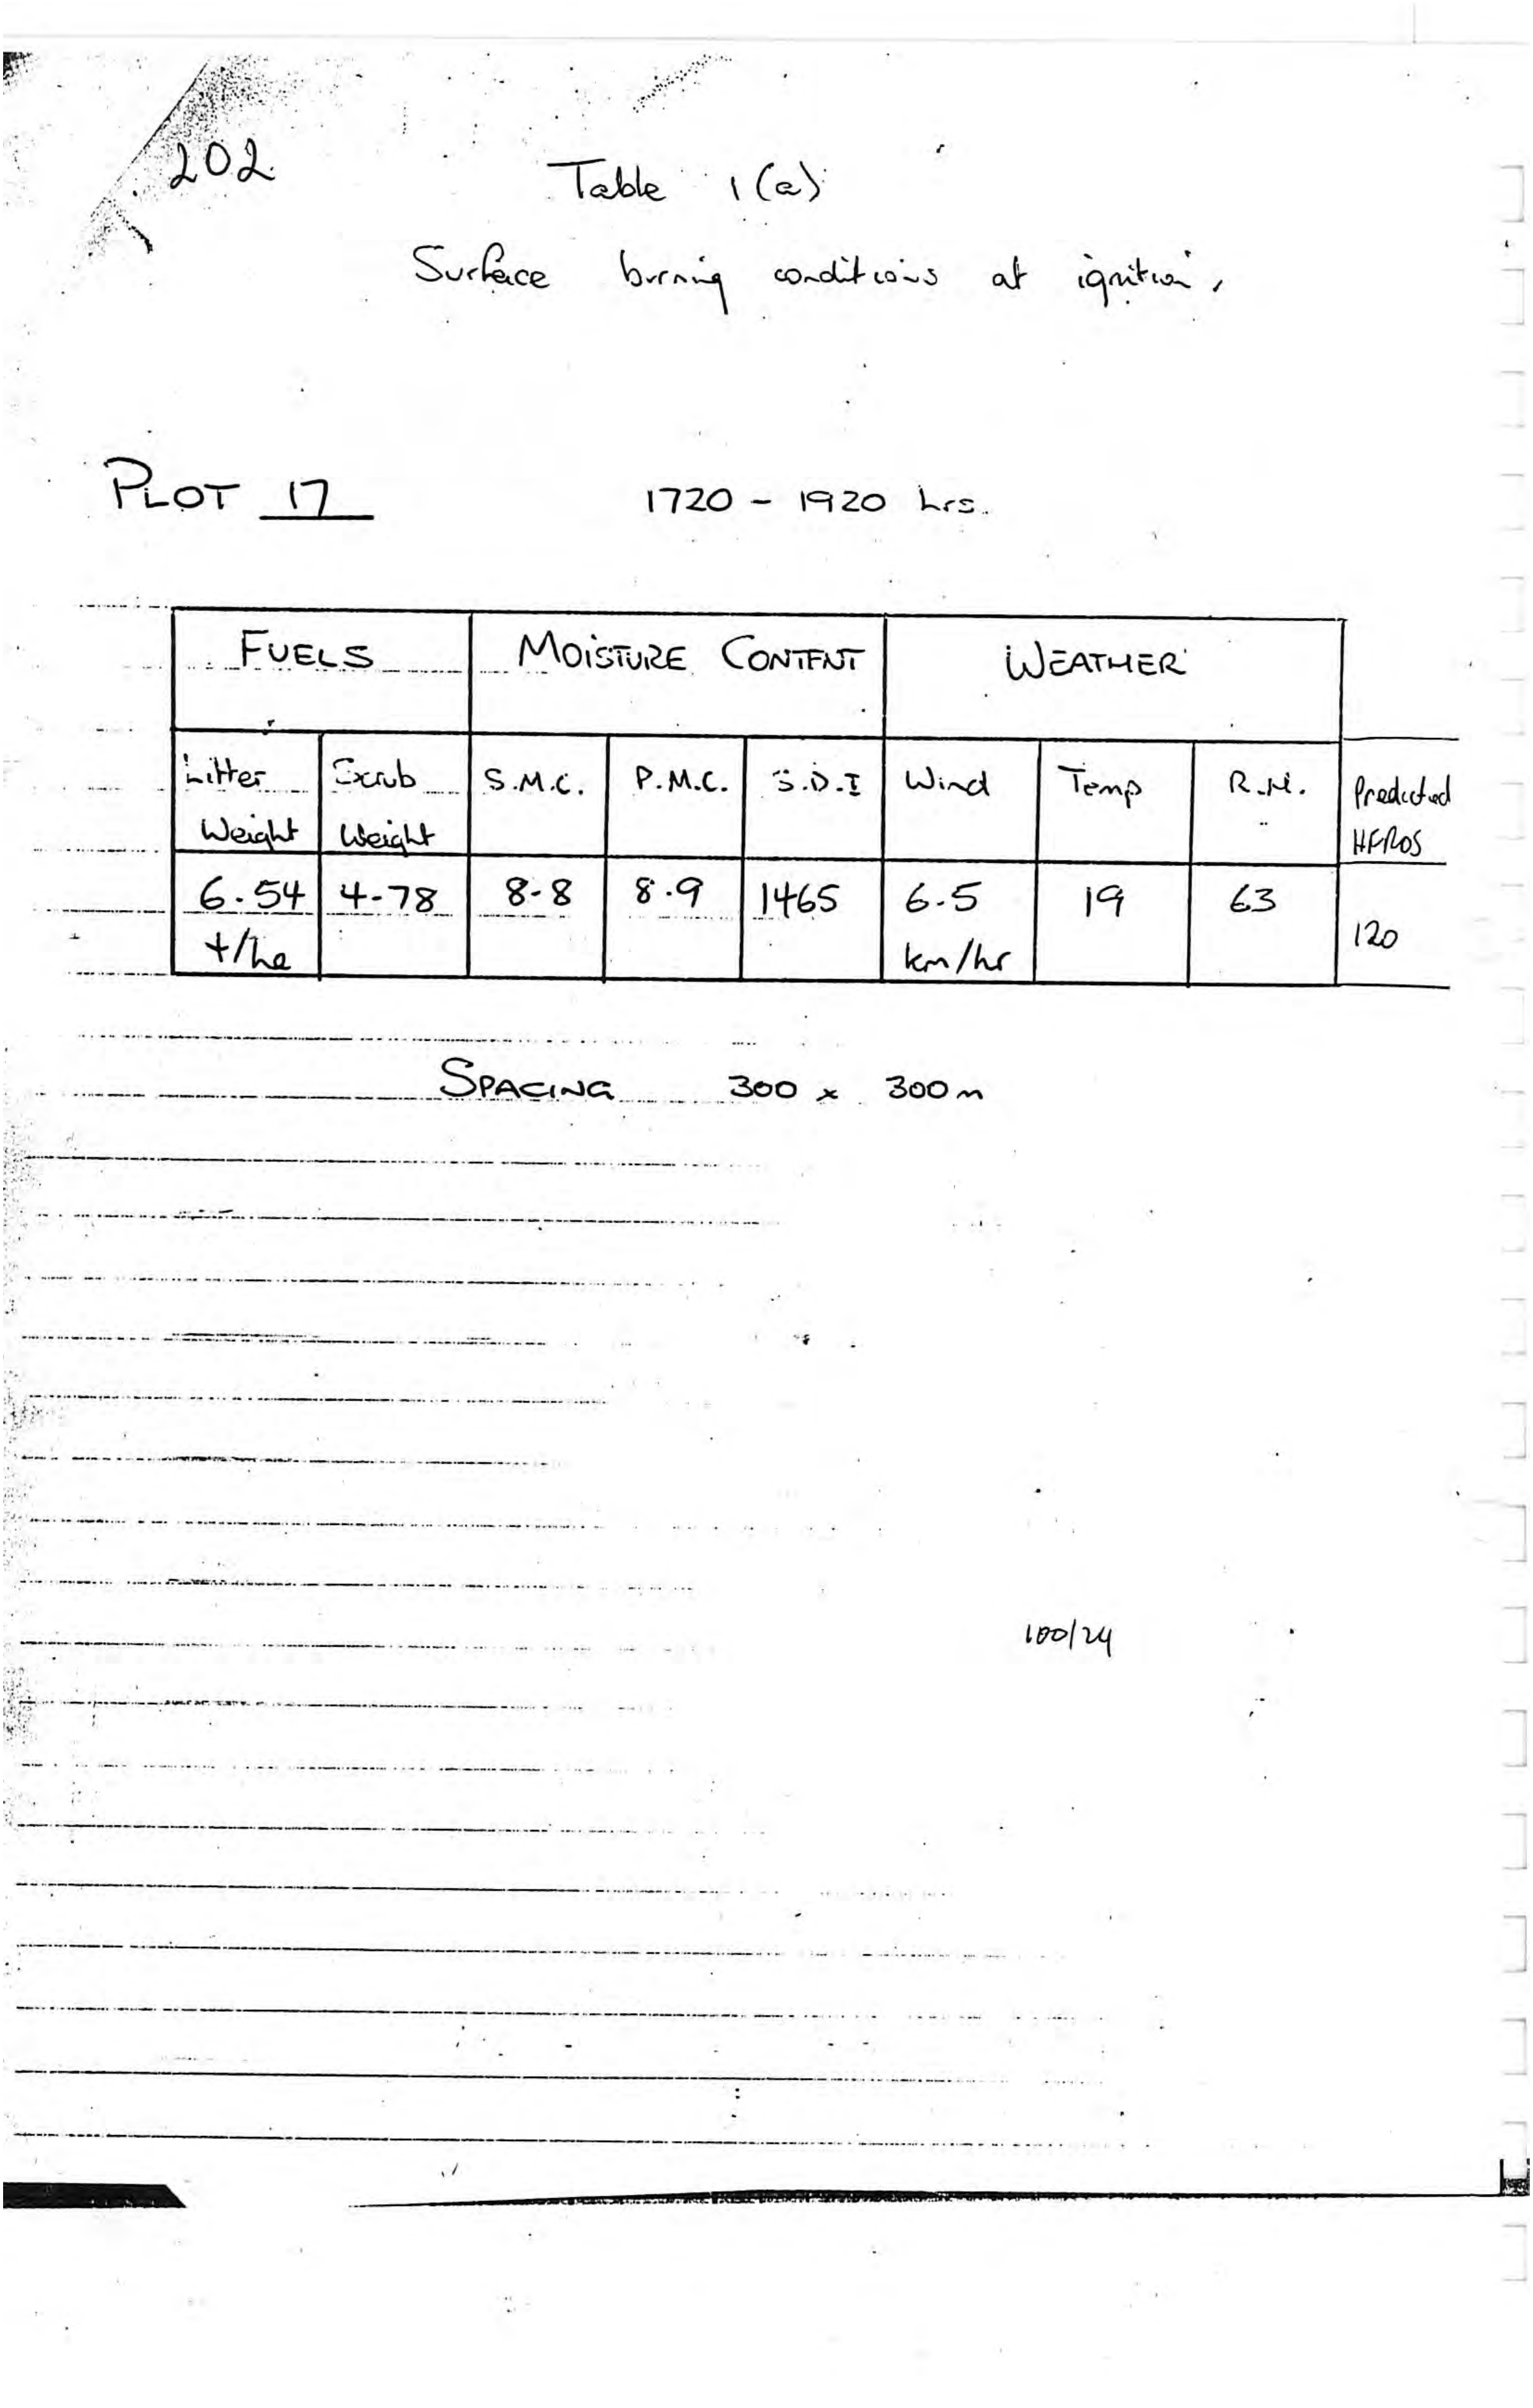 202
Table 1(a)
Surface burning conditions at ignition.
PLOT 17 1720 - 1920 hrs.
FUELS MOISTURE CONTENT WEATHER
Litter Weight Scrub Weight S.M.C. P.M.C. S.D.I Wind Temp R.H. Predicted HFROS
6.54 t/ha 4.78 8.8 8.9 1465 6.5 km/hr 19 63 120
SPACING 300 x 300m
100/24